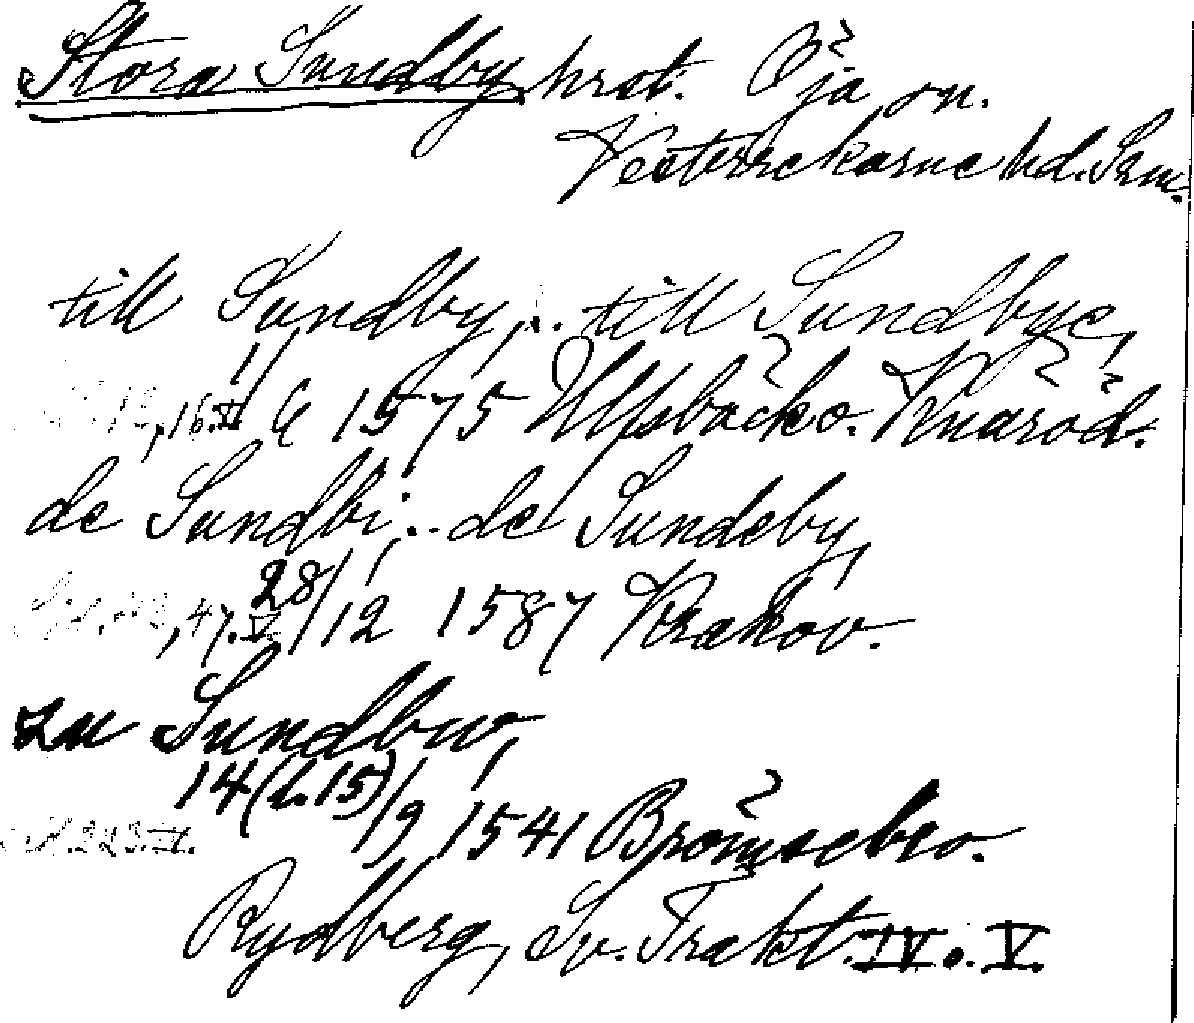 Stora Sundby hrst. Öja sn.
Vesterrekarne hd. Srm.
till Sundby, .. till Sundbye,
,16.V 1/6 1575 Ulfsbäcko. Knäröd.
de Sundbi, .. de Sundeby,
,47.V 28/12 1587 Krakov.
zu Sundbw,
223.IV. 14(l.15)/9 1541 Brömsebro.
Rydberg, Sv. Trakt. IV o. V.